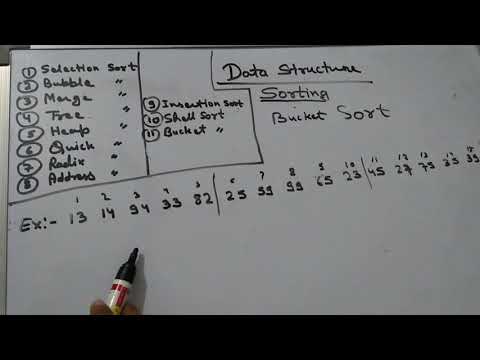 ① Selection Sort
② Bubble "
③ Merge "
④ Tree "
⑤ Heap "
⑥ Quick "
⑦ Radix "
⑧ Address "
⑨ Insertion Sort
⑩ Shell Sort
⑪ Bucket "
Data Structure
Sorting
Bucket Sort
1 2 3 4 5 6 7 8 9 10 11 12 13
Ex:- 13 14 94 33 82 25 59 99 65 23 45 27 75